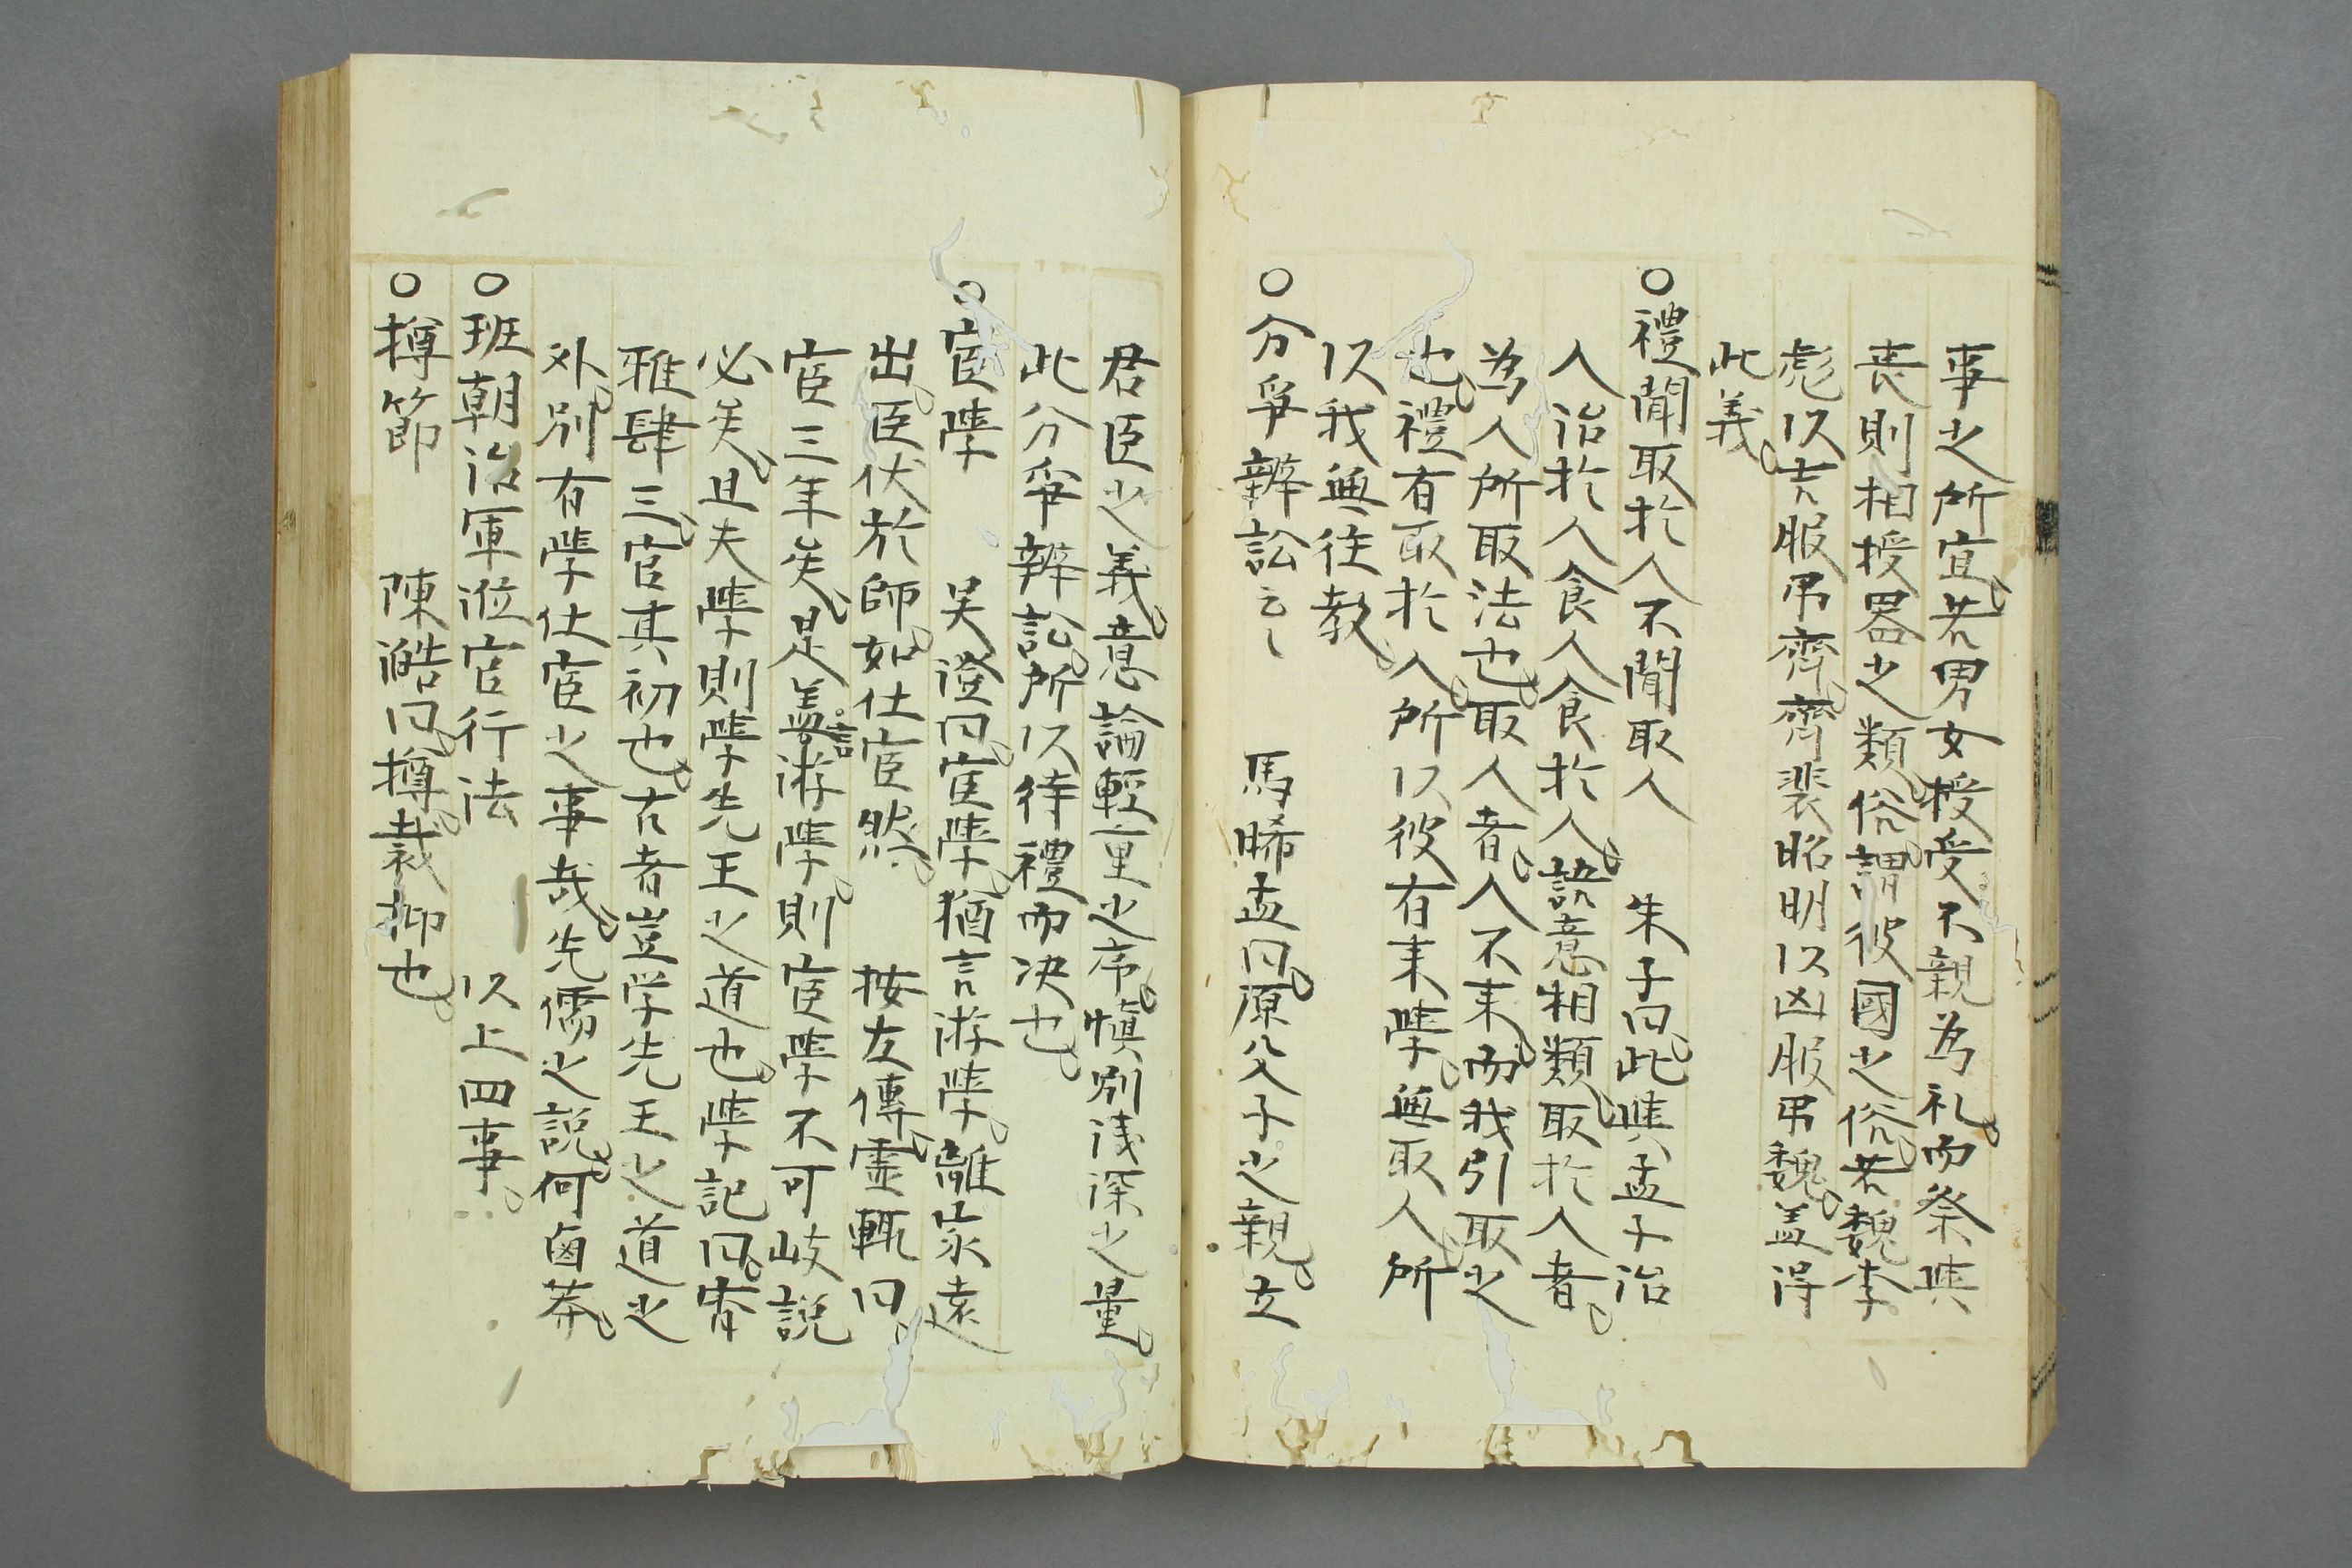 事之所宜若男女授受不親為礼而祭與
喪則相授器之類俗謂彼國之俗若魏李
彪以吉服弔齊齊裴昭明以凶服弔魏盖得
此義
○禮聞取於人不聞取人　朱子曰此與孟子治
人治於人食人食於人語意相類取於人者
為人所取法也取人者人不来而我引取之
也禮有取於人所以彼有来學無取人所
以我無往教
○分爭辨訟云云　馬晞孟曰原父子之親立
君臣之義意論輕重之序慎別浅深之量
此分爭辨訟所以待禮而决也
○宦學　吴澄曰宦學猶言游學離家遠
出臣伏於師如仕宦然　按左傳靈輒曰
宦三年矣是盖言游學則宦學不可岐說
必矣且夫學則學先王之道也學記曰宵
雅肆三官其初也古者豈学先王之道之
外別有學仕宦之事哉先儒之說何鹵莽
○班朝治軍涖官行法　以上四事
○撙節　陳澔曰撙裁抑也